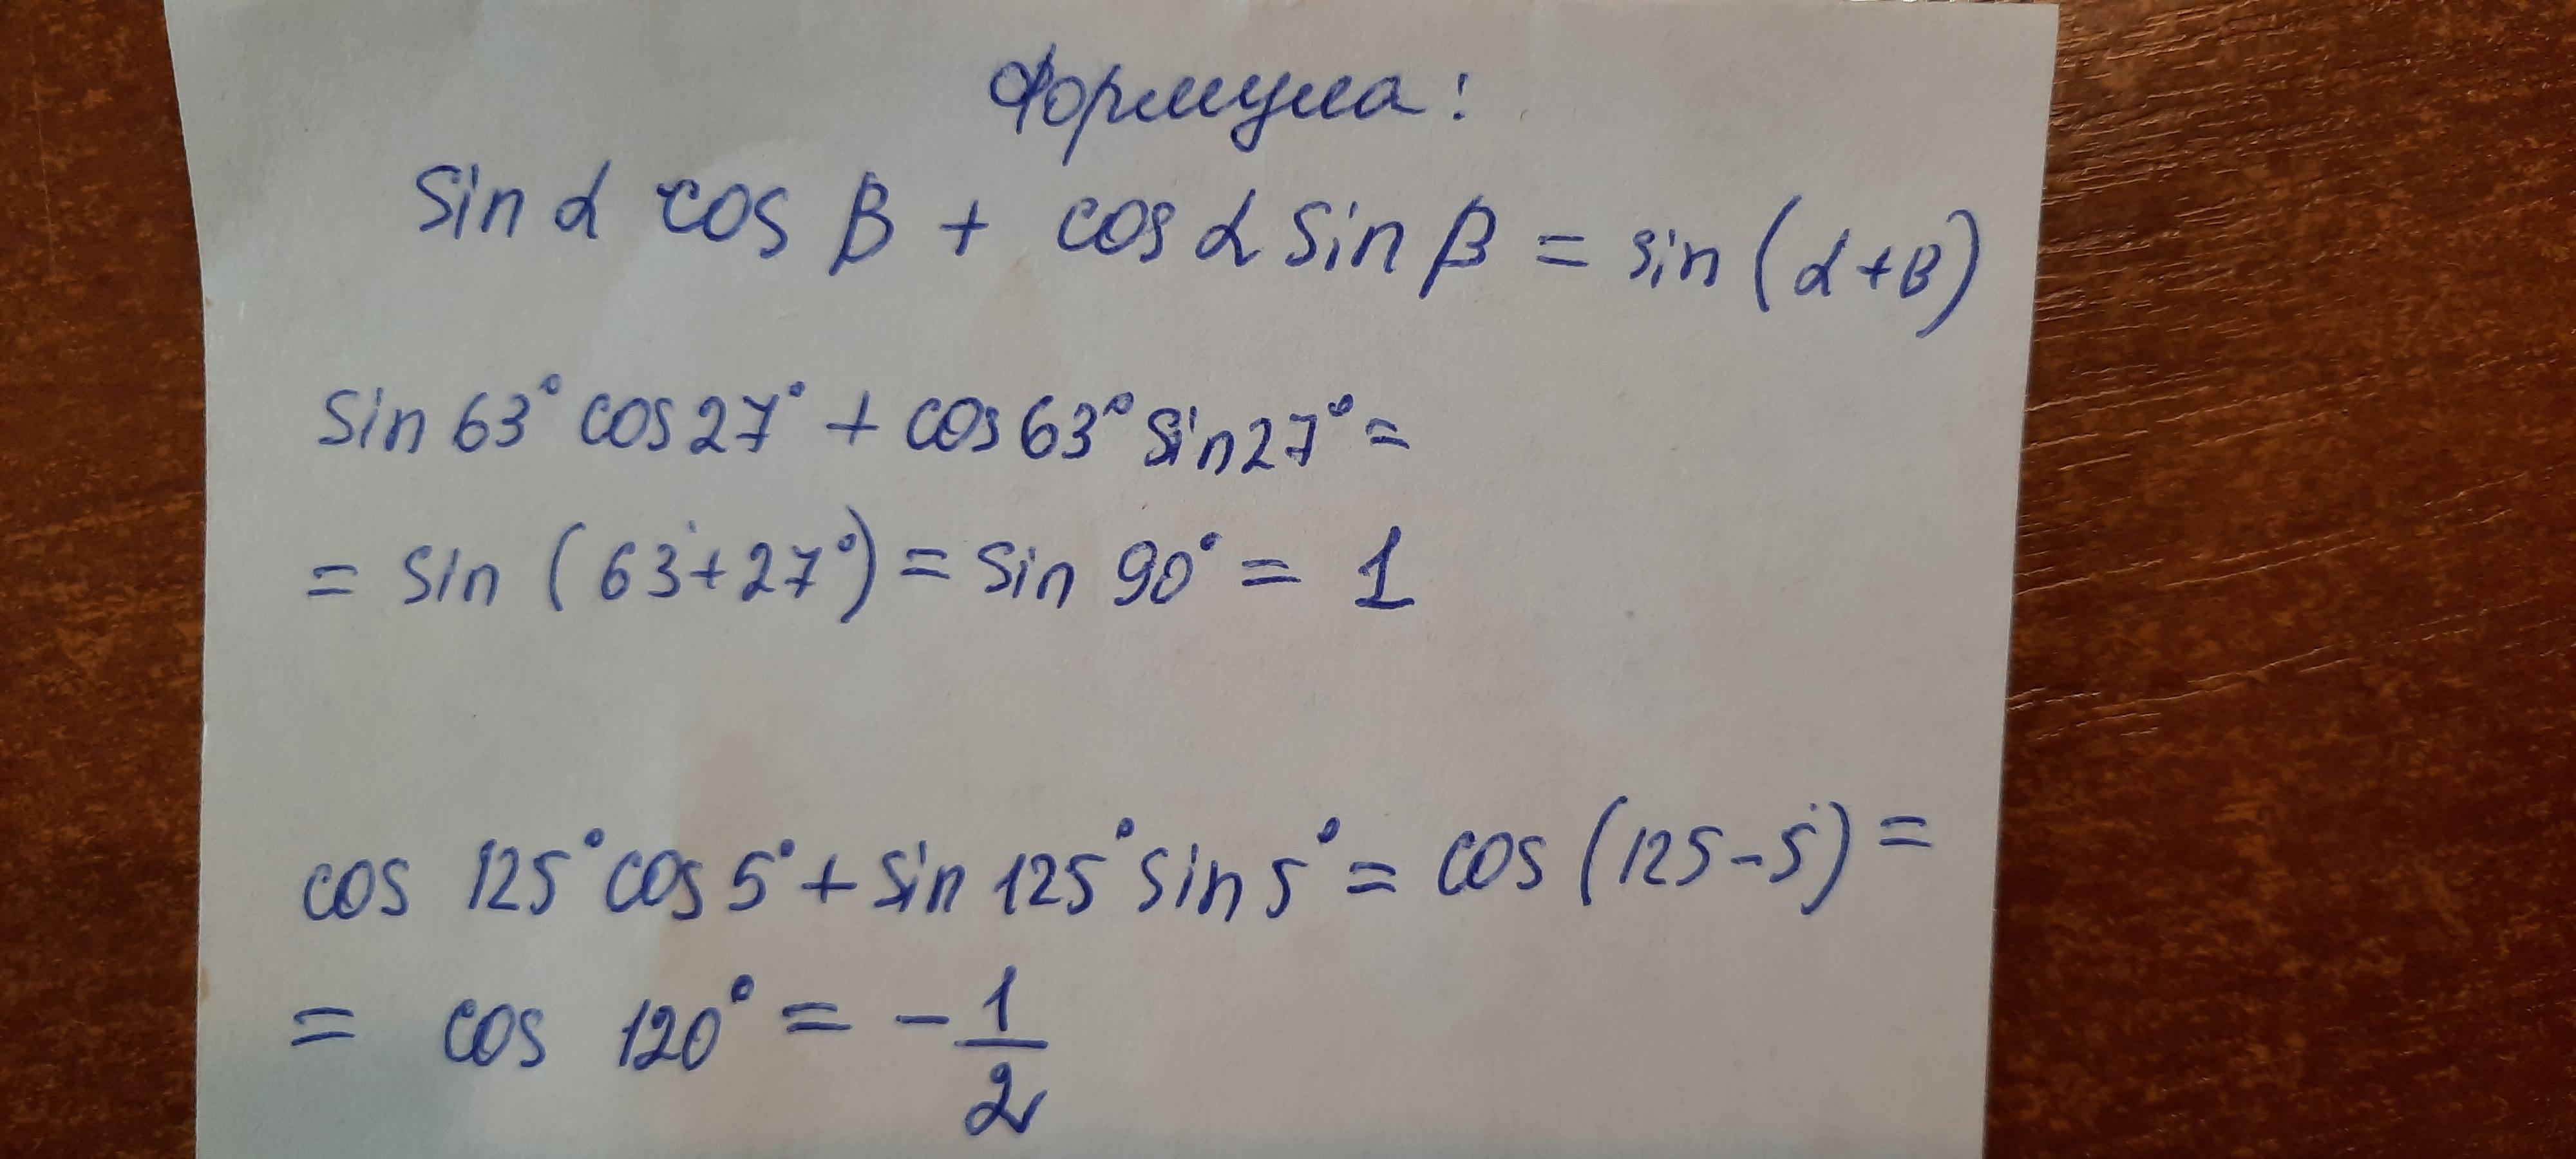 Формула:
sin α cos β + cos α sin β = sin (α+β)
sin 63° cos 27° + cos 63° sin 27° =
= sin (63°+27°) = sin 90° = 1
cos 125° cos 5° + sin 125° sin 5° = cos (125-5°) =
= cos 120° = - 1/2